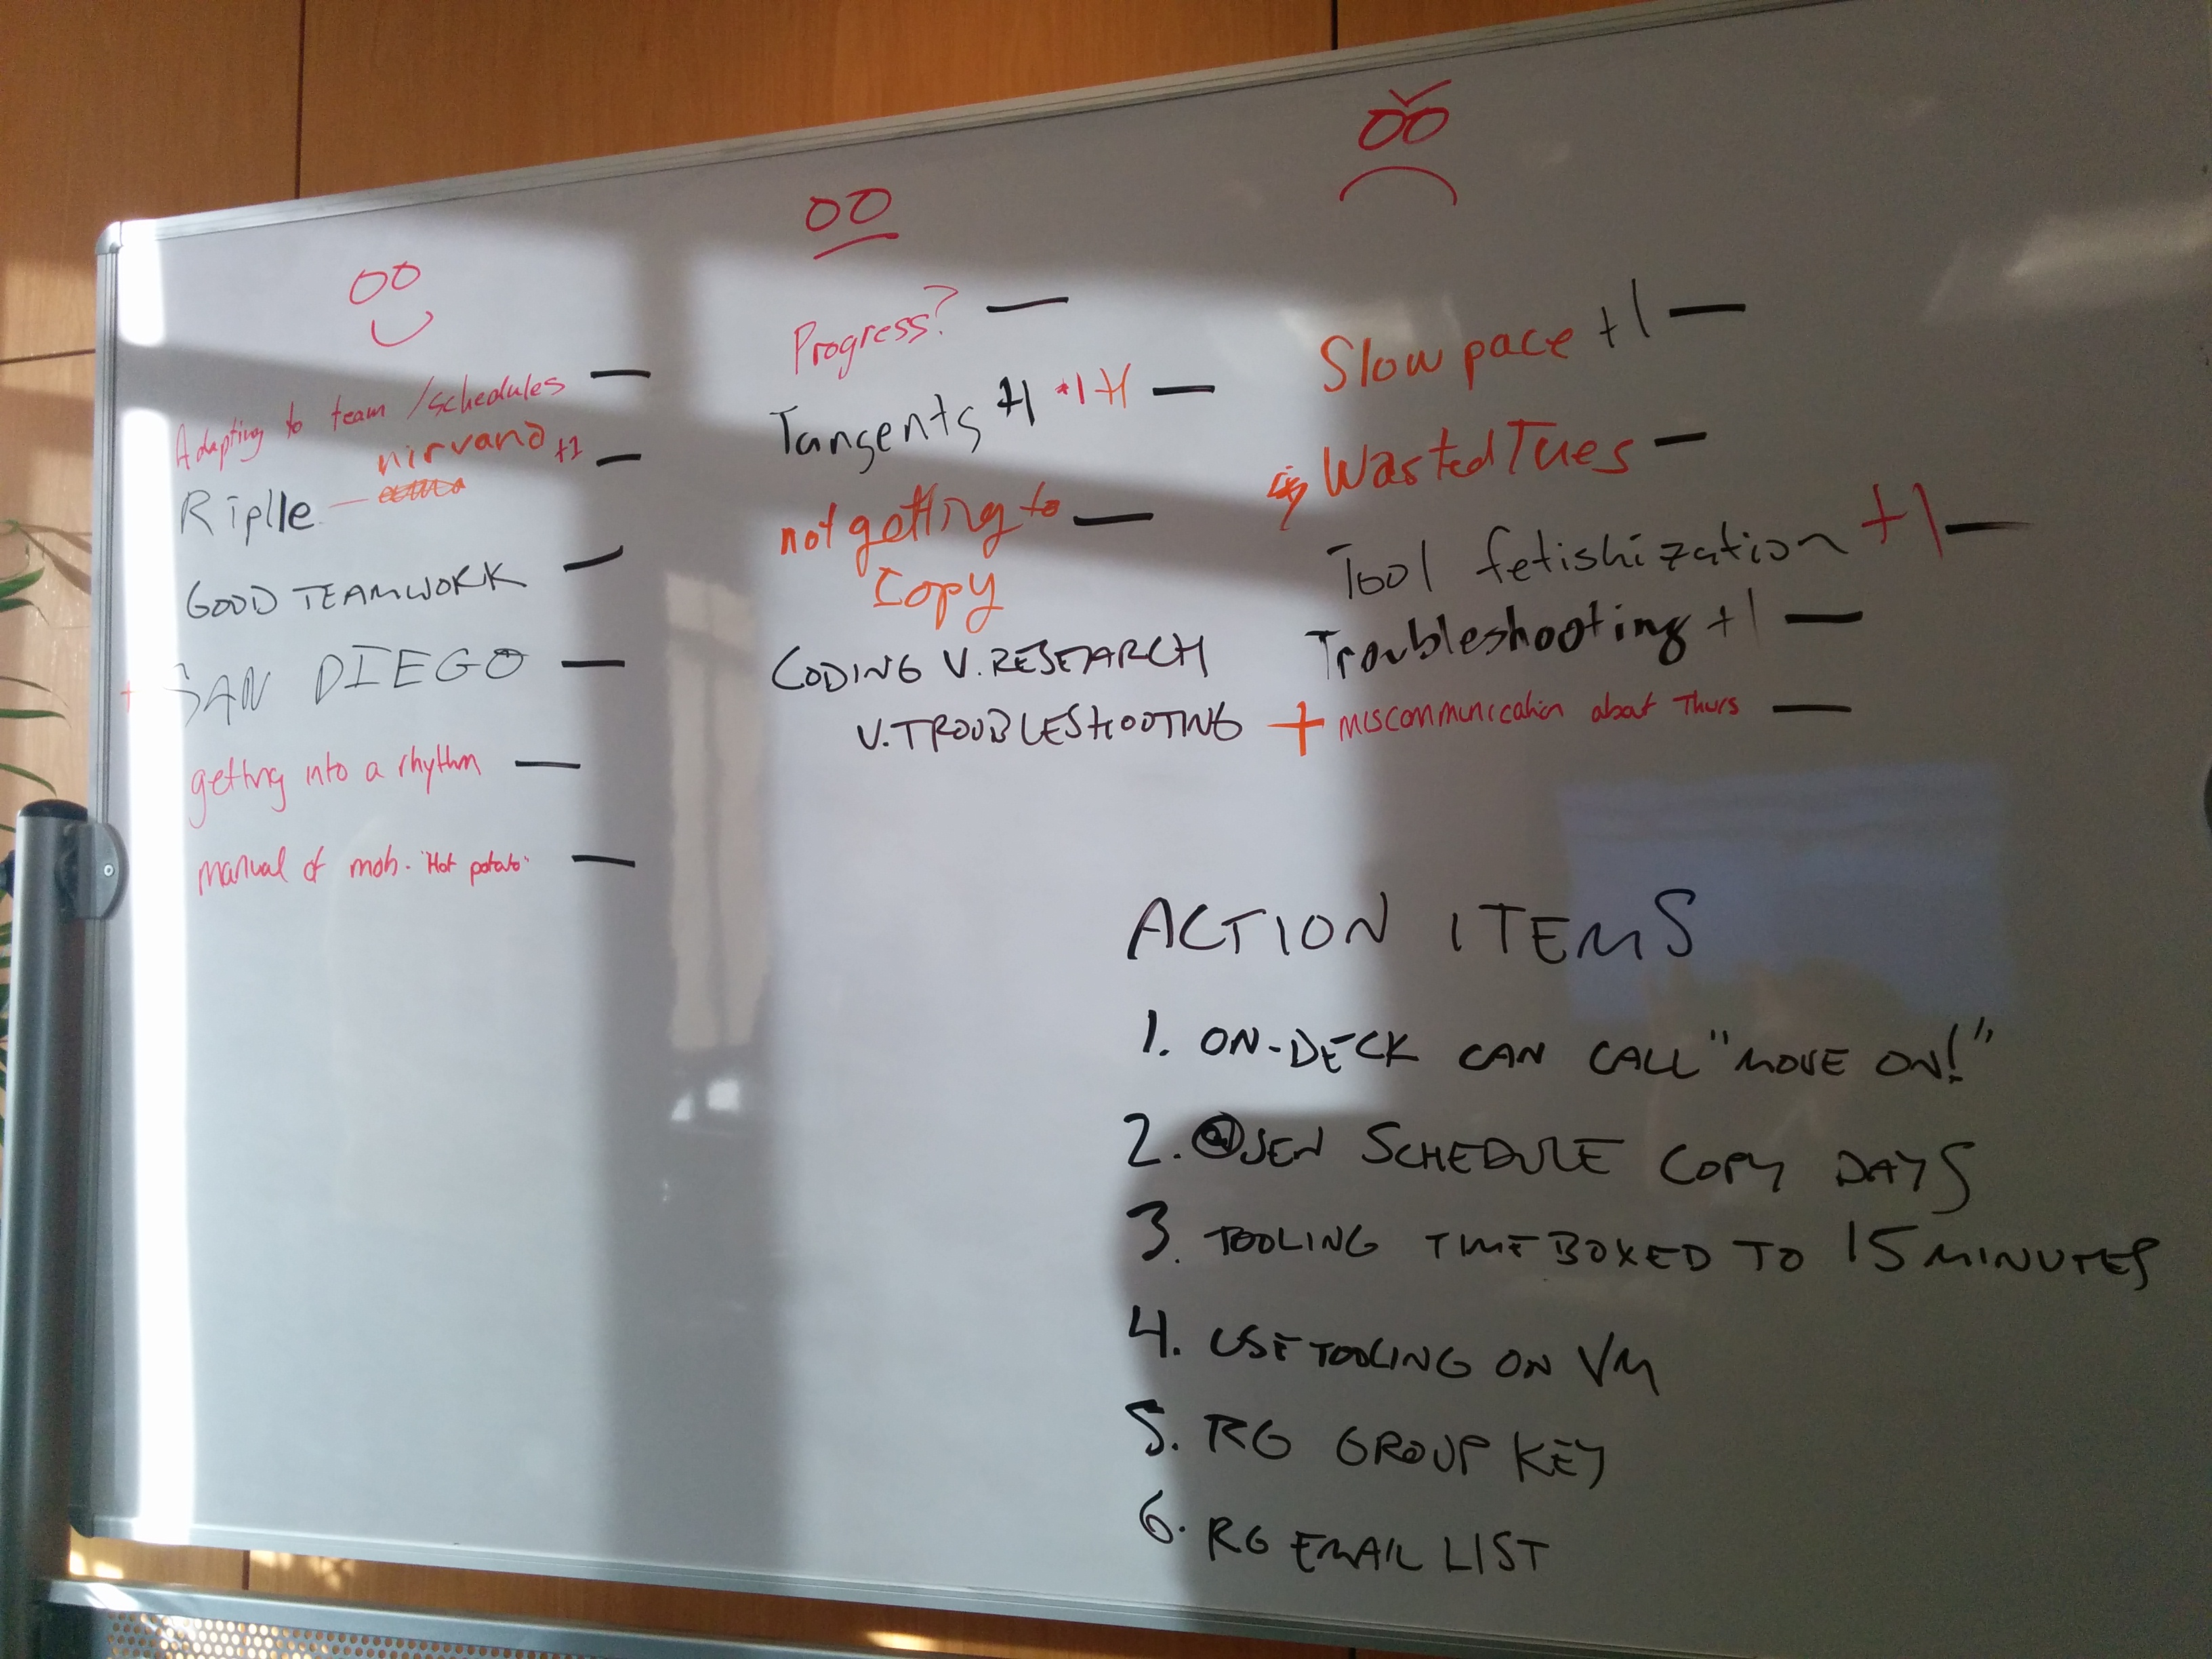 Adapting to team / schedules
nirvana +1
Riplle
GOOD TEAMWORK
+ SAN DIEGO
getting into a rhythm
manual of mob. "Hot potato"
Progress?
Tangents +1 +1 +1
not getting to
Copy
CODING V. RESEARCH
V. TROUBLESHOOTING
Slow pace +1
Wasted Tues
Tool fetishization +1
Troubleshooting +1
+ miscommunication about Thurs
ACTION ITEMS
1. ON-DECK CAN CALL "MOVE ON!"
2. @JEN SCHEDULE COPY DAYS
3. TOOLING TIMEBOXED TO 15 MINUTES
4. USE TOOLING ON VM
5. RG GROUP KEY
6. RG EMAIL LIST